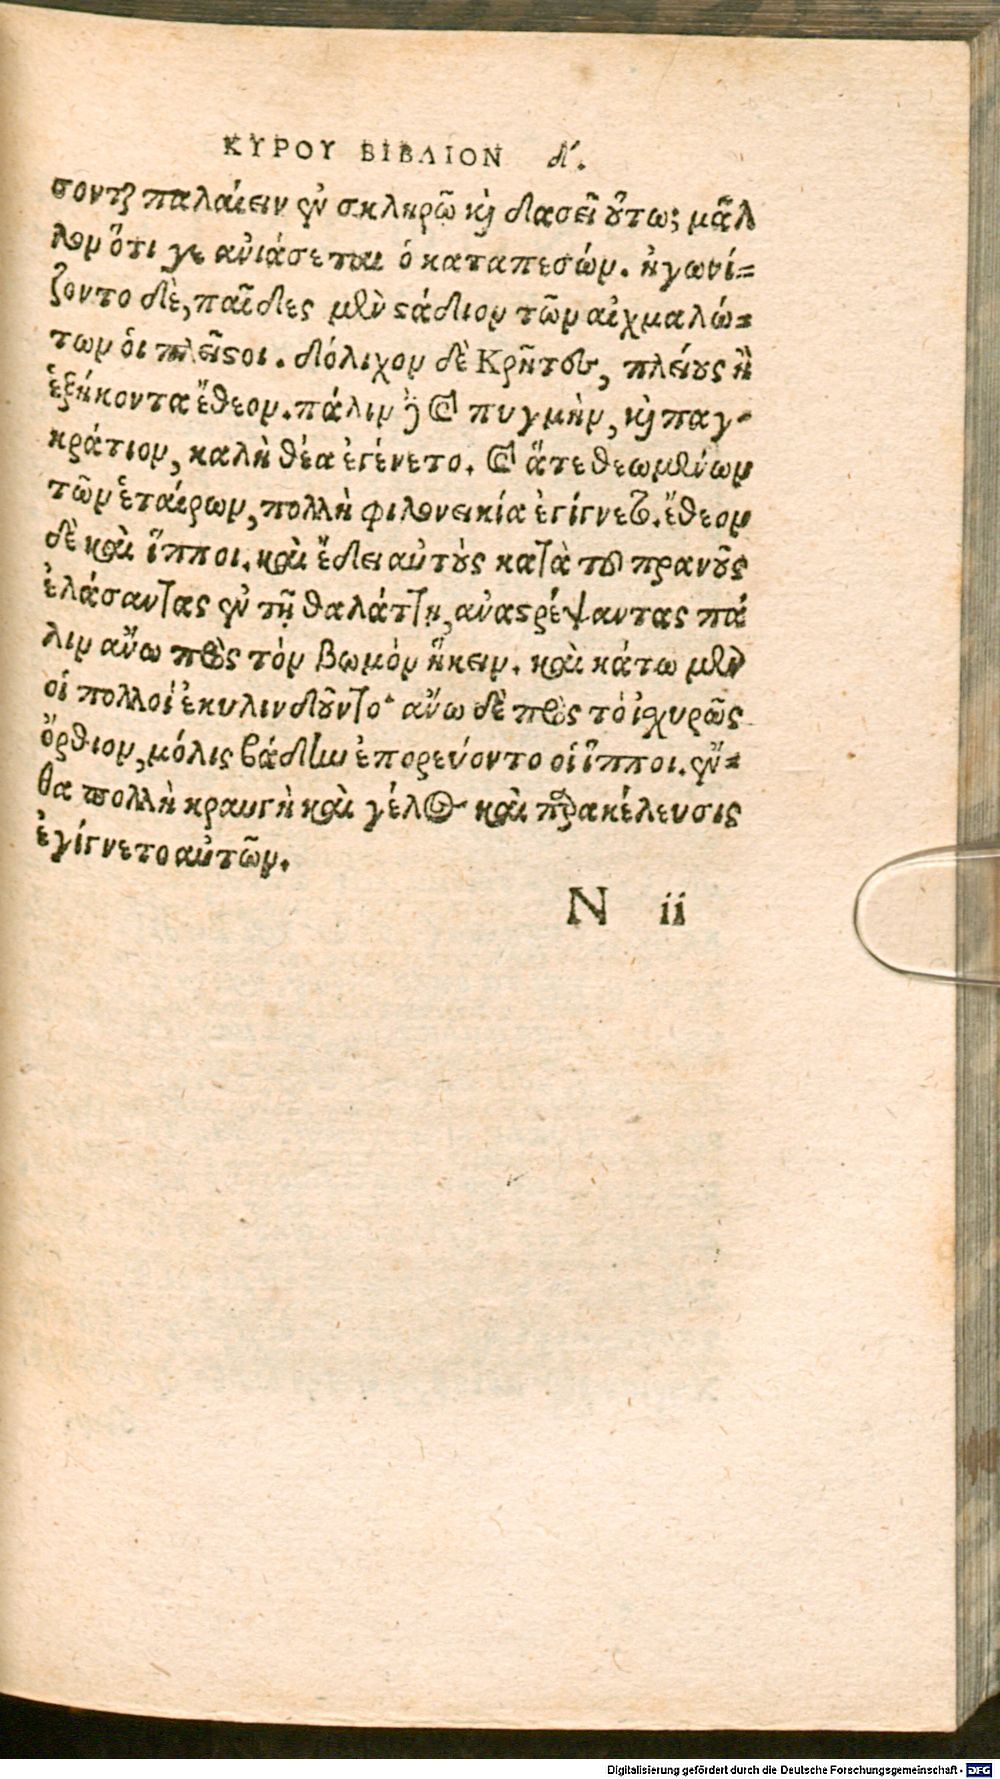 ΚΥΡΟΥ ΒΙΒΛΙΟΝ δ'.
σονται παλαίειν ἐν σκληρῷ καὶ δασεῖ οὕτως; μᾶλ
λον ὅτι γε ἀνιάσεται ὁ καταπεσών. ἠγωνί=
ζοντο δὲ, παῖδες μὲν στάδιον τῶν αἰχμαλώ=
των ὁι πλεῖστοι. δόλιχον δὲ Κρῆτες, πλείους ἢ
ἑξήκοντα ἔθεον. πάλιν δὲ καὶ πυγμὴν, καὶ παγ-
κράτιον, καλὴ θέα ἐγένετο. καὶ ἅτε θεωμένων
τῶν ἑταίρων, πολλὴ φιλονεικία ἐγίγνετο. ἔθεον
δὲ καὶ ἵπποι. καὶ ἔδει αὐτοὺς κατὰ τοῦ πρανοῦς
ἐλάσαντας ἐν τῇ θαλάττῃ, ἀναστρέψαντας πά
λιν ἄνω πρὸς τὸν βωμὸν ἥκειν. καὶ κάτω μὲν
οἱ πολλοὶ ἐκυλινδοῦντο· ἄνω δὲ πρὸς τὸ ἰσχυρῶς
ὄρθιον, μόλις βάδην ἐπορεύοντο οἱ ἵπποι. ἔν=
θα πολλὴ κραυγὴ καὶ γέλως καὶ παρακέλευσις
ἐγίγνετο αὐτῶν.
N ii
Digitalisierung gefördert durch die Deutsche Forschungsgemeinschaft - DFG